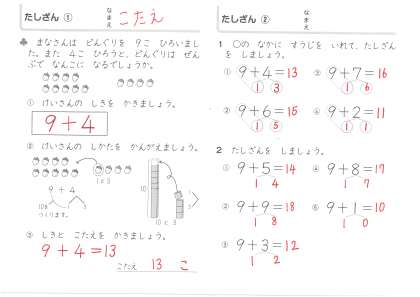 たしざん ①
なまえ
こたえ
♣ まなさんは どんぐりを 9こ ひろいました。また 4こ ひろうと、どんぐりは ぜんぶで なんこに なるでしょうか。
① けいさんの しきを かきましょう。
9+4
② けいさんの しかたを かんがえましょう。
1と3
10
9 + 4
1 3
つくります。
10と3
③ しきと こたえを かきましょう。
9+4=13
こたえ 13 こ
たしざん ②
なまえ
1 ○の なかに すうじを いれて、たしざんを しましょう。
① 9+4=13
1 3
② 9+6=15
1 5
③ 9+7=16
1 6
④ 9+2=11
1 1
2 たしざんを しましょう。
① 9+5=14
1 4
② 9+9=18
1 8
③ 9+3=12
1 2
④ 9+8=17
1 7
⑥ 9+1=10
1 0